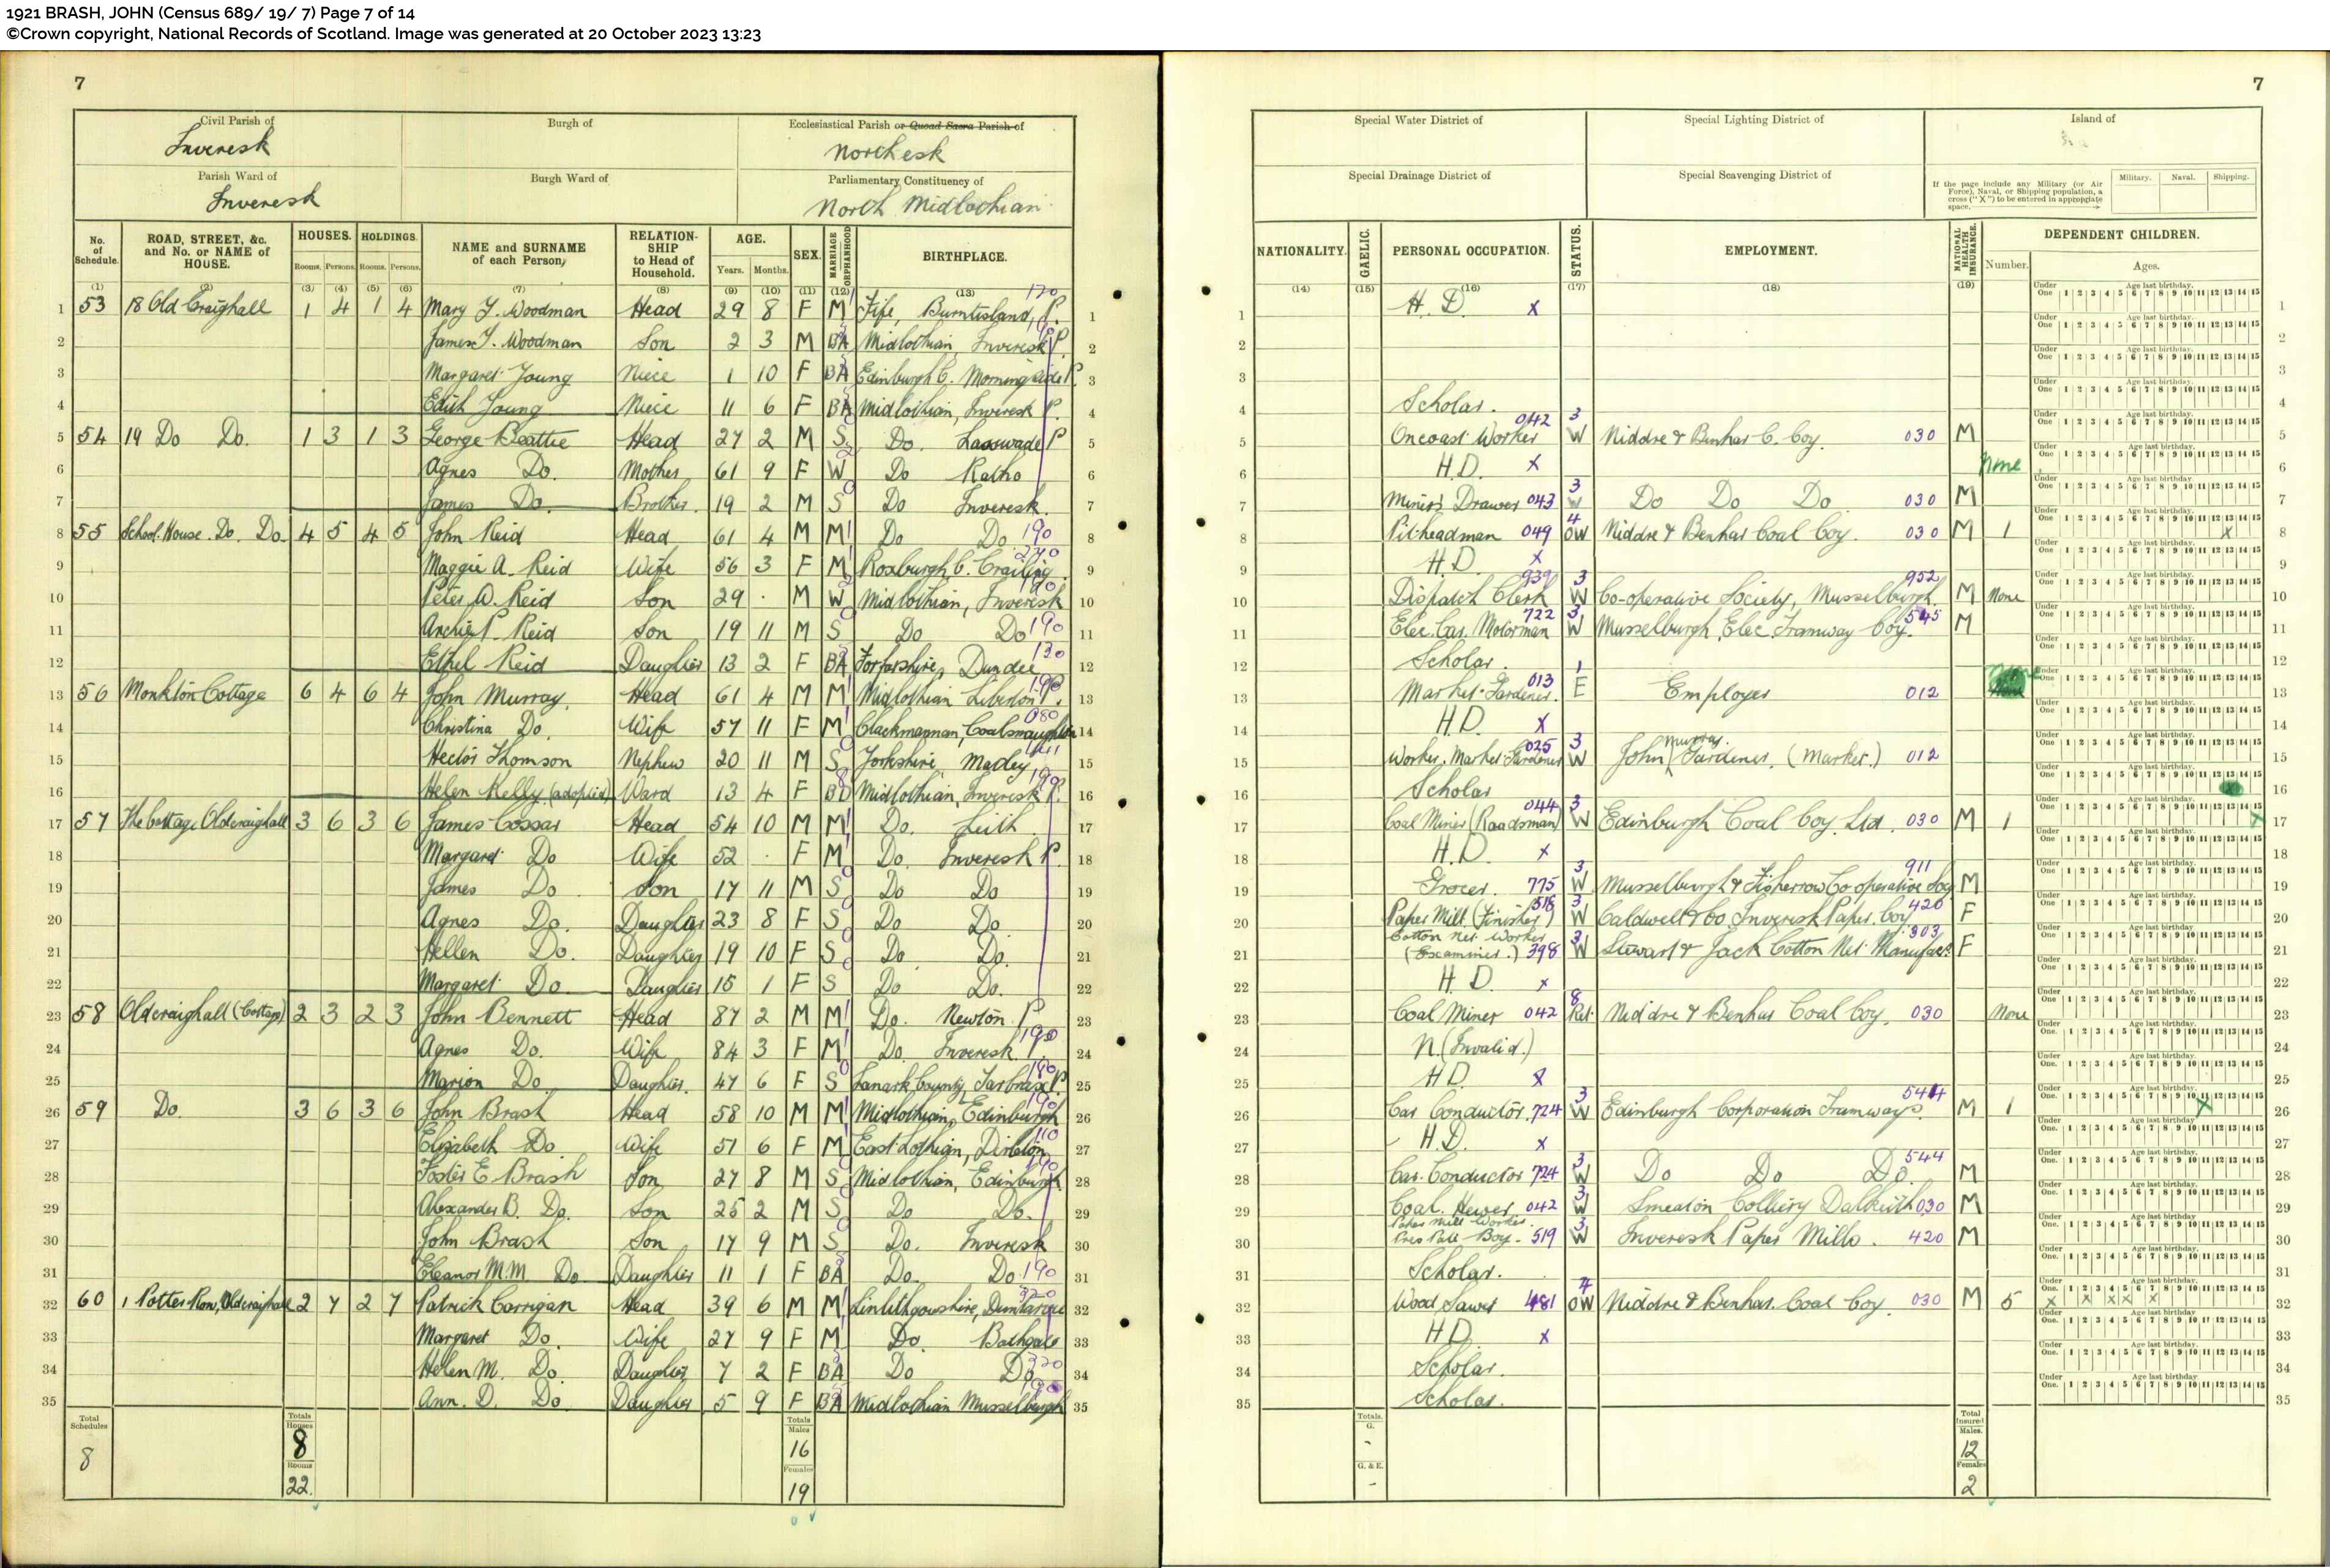 1921 BRASH, JOHN (Census 689/ 19/ 7) Page 7 of 14
©Crown copyright, National Records of Scotland. Image was generated at 20 October 2023 13:23
7
Civil Parish of Inveresk
Burgh of
Ecclesiastical Parish or Quoad Sacra Parish of Northesk
Parish Ward of Inveresk
Burgh Ward of
Parliamentary Constituency of North Midlothian
No. of Schedule. ROAD, STREET, &c. and No. or NAME of HOUSE. HOUSES. HOLDINGS. NAME and SURNAME of each Person. RELATIONSHIP to Head of Household. AGE. SEX. MARRIAGE ORPHANHOOD BIRTHPLACE.
Rooms. Persons. Rooms. Persons. Years. Months.
(1) (2) (3) (4) (5) (6) (7) (8) (9) (10) (11) (12) (13)
1 53 18 Old Craighall 1 4 1 4 Mary Y. Woodman Head 29 8 F M Fife, Burntisland, P. 1
2 James Y. Woodman Son 2 3 M BA Midlothian, Inveresk P. 2
3 Margaret Young Niece 1 10 F BA Edinburgh C. Morningside P. 3
4 Edith Young Niece 11 6 F BA Midlothian, Inveresk P. 4
5 54 19 Do Do. 1 3 1 3 George Beattie Head 27 2 M S Do. Lasswade P 5
6 Agnes Do. Mother 61 9 F W Do Ratho 6
7 James Do. Brother. 19 2 M S Do Inveresk. 7
8 55 School House. Do. Do. 4 5 4 5 John Reid Head 61 4 M M Do Do 190 8
9 Maggie A. Reid Wife 56 3 F M Roxburgh C. Crailing 9
10 Peter W. Reid Son 29 . M W Midlothian, Inveresk 10
11 Archie P. Reid Son 19 11 M S Do Do 190 11
12 Ethel Reid Daughter 13 2 F BA Forfarshire, Dundee 130 12
13 56 Monkton Cottage 6 4 6 4 John Murray. Head 61 4 M M Midlothian Liberton P. 13
14 Christina Do. Wife 57 11 F M Clackmannan, Coalsnaughton 080 14
15 Hector Thomson Nephew 20 11 M S Yorkshire, Madley 15
16 Helen Kelly (adopted) Ward 13 4 F BD Midlothian, Inveresk P. 16
17 57 The Cottage Oldcraighall 3 6 3 6 James Cossar Head 54 10 M M Do. Leith 17
18 Margaret Do Wife 52 . F M Do. Inveresk P. 18
19 James Do Son 17 11 M S Do Do 19
20 Agnes Do. Daughter 23 8 F S Do Do. 20
21 Hellen Do. Daughter 19 10 F S Do Do. 21
22 Margaret Do Daughter 15 1 F S Do Do. 22
23 58 Oldcraighall (Cottage) 2 3 2 3 John Bennett Head 87 2 M M Do. Newton P 23
24 Agnes Do. Wife 84 3 F M Do. Inveresk P. 190 24
25 Marion Do Daughter. 47 6 F S Lanark County, Tarbrax P. 25
26 59 Do. 3 6 3 6 John Brash Head 58 10 M M Midlothian, Edinburgh 26
27 Elizabeth Do. Wife 51 6 F M East Lothian, Dirleton 110 27
28 Foster E Brash Son 27 8 M S Midlothian, Edinburgh 28
29 Alexander B. Do. Son 25 2 M S Do Do. 29
30 John Brash Son 17 9 M S Do. Inveresk 30
31 Eleanor M.M. Do Daughter 11 1 F BA Do. Do 190 31
32 60 1 Potter Row, Oldcraighall 2 7 2 7 Patrick Carrigan Head 39 6 M M Linlithgowshire, 320 32
33 Margaret Do. Wife 27 9 F M Do. Bathgate 33
34 Helen M. Do. Daughter 7 2 F BA Do Do 320 34
35 Ann. D. Do Daughter 5 9 F BA Midlothian Musselburgh 35
Total Schedules 8
Totals Houses 8 Rooms 22.
Totals Males 16 Females 19
7
Special Water District of
Special Lighting District of
Island of
Special Drainage District of
Special Scavenging District of
If the page include any Military (or Air Force), Naval, or Shipping population, a cross ("X") to be entered in appropriate space.
Military. Naval. Shipping.
NATIONALITY. GAELIC. PERSONAL OCCUPATION. STATUS. EMPLOYMENT. NATIONAL HEALTH INSURANCE. DEPENDENT CHILDREN.
Number. Ages.
(14) (15) (16) (17) (18) (19)
Under One 1 2 3 4 5 6 7 8 9 10 11 12 13 14 15 Age last birthday.
1 H. D. X 1
2 2
3 3
4 Scholar. 4
5 Oncost Worker 042 3 W Niddre & Benhar C. Coy. 030 M 5
6 H.D. X None 6
7 Miner's Drawer 043 3 W Do Do Do 030 M 7
8 Pitheadman 049 4 OW Niddre & Benhar Coal Coy. 030 M 1 X 8
9 H.D. X 9
10 Dispatch Clerk 939 3 W Co-operative Society, Musselburgh 952 M None 10
11 Elec. Car. Motorman 722 3 W Musselburgh Elec Tramway Coy. 545 M 11
12 Scholar. 12
13 Market Gardener. 013 1 E Employer 012 13
14 H.D. X 14
15 Worker, Market Gardener 025 3 W John Murray Gardener, (Market.) 012 15
16 Scholar 16
17 Coal Miner (Roadsman) 044 3 W Edinburgh Coal Coy. Ltd. 030 M 1 X 17
18 H.D. X 18
19 Grocer. 775 3 W Musselburgh & Fisherrow Co-operative Soc 911 M 19
20 Paper Mill (Finisher) 518 3 W Caldwell & Co. Inveresk Paper. Coy 420 F 20
21 Cotton Net Worker (Examiner.) 398 3 W Stewart & Jack Cotton Net Manufact. 303 F 21
22 H. D. X 22
23 Coal Miner 042 8 Ret. Niddre & Benhar Coal Coy. 030 None 23
24 N. (Invalid.) 24
25 H.D. X 25
26 Car Conductor. 724 3 W Edinburgh Corporation Tramways. 544 M 1 X 26
27 H.D. X 27
28 Car. Conductor 724 3 W Do Do Do. 544 M 28
29 Coal Hewer 042 3 W Smeaton Colliery Dalkeith 030 M 29
30 Paper Mill Worker. Boy. 519 3 W Inveresk Paper Mills. 420 M 30
31 Scholar. 31
32 Wood Sawer 481 4 OW Niddre & Benhar. Coal Coy. 030 M 5 X X X X X 32
33 H.D. X 33
34 Scholar. 34
35 Scholar. 35
Totals. G. - G. & E. -
Total Insured Males. 12 Females 2